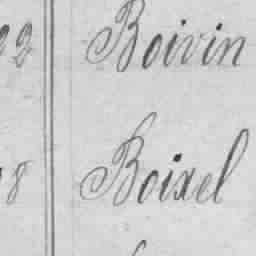 22 Boivin
8 Boixel